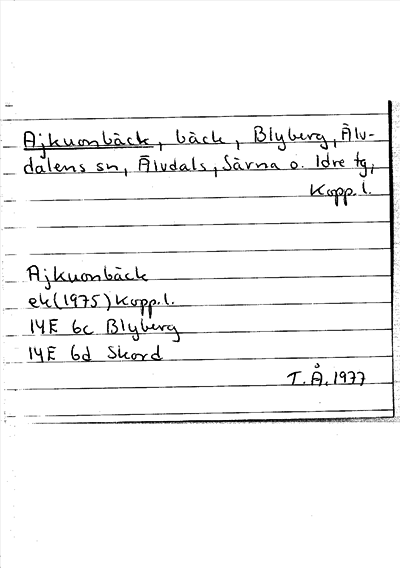 Ajkuonbäck, bäck, Blyberg, Älv-
dalens sn, Älvdals, Särna o. Idre tg,
Kopp. l.
Ajkuonbäck
ek (1975) Kopp. l.
14E 6c Blyberg
14E 6d Skord
T. Å. 1977